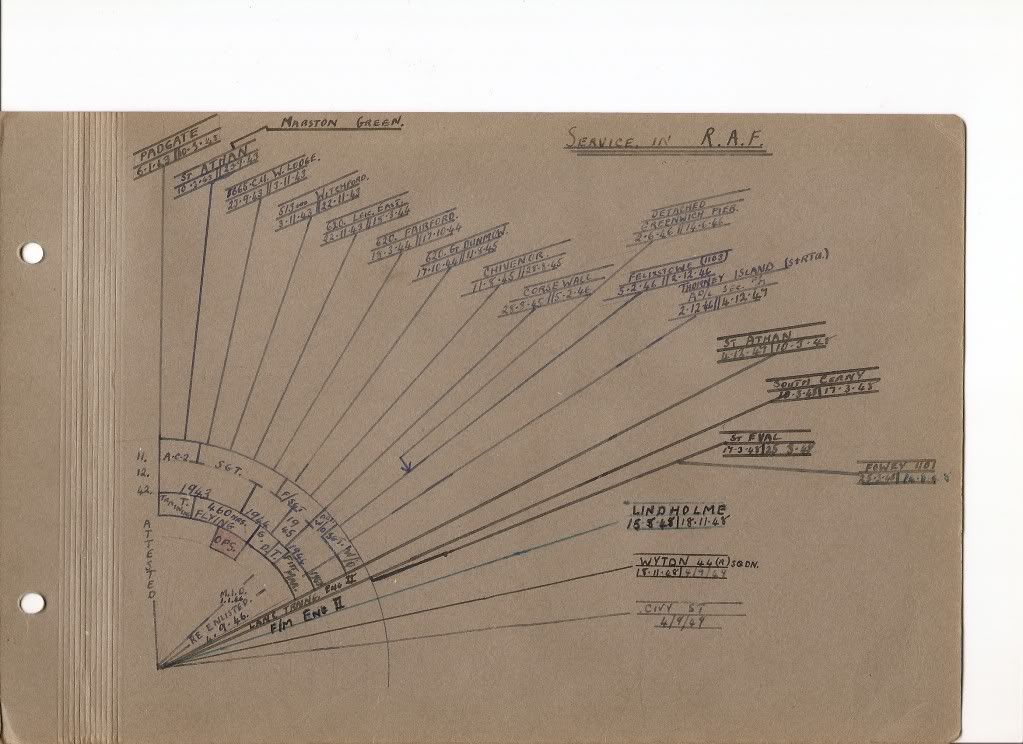 SERVICE IN R.A.F.
MARSTON GREEN.
PADGATE
6.1.43 10.3.43
ST ATHAN
10.3.43
1665 C.U. W. LODGE.
23.9.43 3.11.43
513 WITCHFORD.
3.11.43 22.11.43
620. LEIC. EAST.
22.11.43 18.3.44
620. FAIRFORD.
18.3.44 17.10.44
620. GT DUNMOW.
17.10.44 11.8.45
CHIVENOR.
11.8.45 25.9.45
CORSEWALL
25.9.45 5.2.46
DETACHED
GREENWICH PIER.
2.6.46 14.6.46
FELIXSTOWE (1103)
5.2.46 2.12.46
THORNEY ISLAND (S+RTU.)
2.12.46 4.12.47
ST ATHAN
4.12.47 10.3.48
SOUTH CERNY
10.3.48 17.3.48
ST EVAL
17.3.48 25.3.48
FOWEY 1101
25.3.48
LINDHOLME
15.8.48 18.11.48
WYTON 44(R) SQDN.
18.11.48 4/9/49
CIVY ST
4/9/49
11.
12.
42.
ATTESTED
A.C.2.
SGT.
F/SGT
W/O
1943
1944
1945
1946
T. TRAINING
460 HRS.
FLYING
OPS.
G.D.T.
FIT MAR.
ENG II
M.I.D.
1.1.46.
RE ENLISTED.
4.9.46.
F/M ENG II